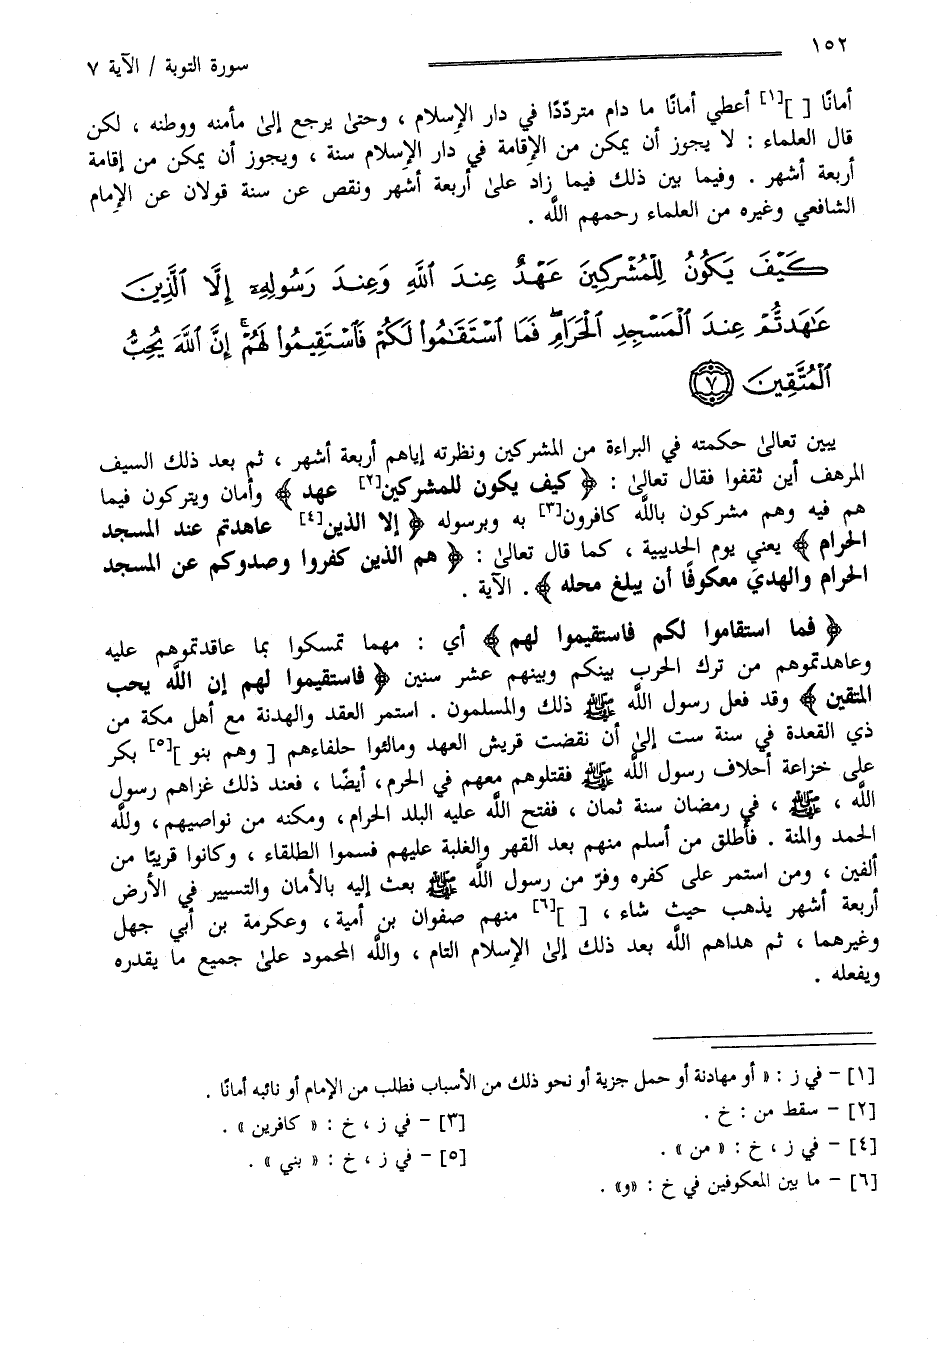 ١٥٢
سورة التوبة / الآية ٧
أمانًا [ ][١] أعطي أمانًا ما دام متردّدًا في دار الإسلام ، وحتىٰ يرجع إلىٰ مأمنه ووطنه ، لكن
قال العلماء : لا يجوز أن يمكن من الإقامة في دار الإسلام سنة ، ويجوز أن يمكن من إقامة
أربعة أشهر . وفيما بين ذلك فيما زاد علىٰ أربعة أشهر ونقص عن سنة قولان عن الإمام
الشافعي وغيره من العلماء رحمهم اللَّه .
كَيْفَ يَكُونُ لِلْمُشْرِكِينَ عَهْدٌ عِندَ ٱللَّهِ وَعِندَ رَسُولِهِۦٓ إِلَّا ٱلَّذِينَ
عَٰهَدتُّمْ عِندَ ٱلْمَسْجِدِ ٱلْحَرَامِ ۖ فَمَا ٱسْتَقَٰمُوا۟ لَكُمْ فَٱسْتَقِيمُوا۟ لَهُمْ ۚ إِنَّ ٱللَّهَ يُحِبُّ
ٱلْمُتَّقِينَ ٧
يبين تعالىٰ حكمته في البراءة من المشركين ونظرته إياهم أربعة أشهر ، ثم بعد ذلك السيف
المرهف أين ثقفوا فقال تعالىٰ : ﴿ كيف يكون للمشركين[٢] عهد ﴾ وأمان ويتركون فيما
هم فيه وهم مشركون باللَّه كافرون[٣] به وبرسوله ﴿ إلا الذين[٤] عاهدتم عند المسجد
الحرام ﴾ يعني يوم الحديبية ، كما قال تعالىٰ : ﴿ هم الذين كفروا وصدوكم عن المسجد
الحرام والهديَ معكوفًا أن يبلغ محله ﴾ . الآية .
﴿ فما استقاموا لكم فاستقيموا لهم ﴾ أي : مهما تمسكوا بما عاقدتموهم عليه
وعاهدتموهم من ترك الحرب بينكم وبينهم عشر سنين ﴿ فاستقيموا لهم إن اللَّه يحب
المتقين ﴾ وقد فعل رسول اللَّه ﷺ ذلك والمسلمون . استمر العقد والهدنة مع أهل مكة من
ذي القعدة في سنة ست إلىٰ أن نقضت قريش العهد ومالئوا حلفاءهم [ وهم بنو ][٥] بكر
على خزاعة أحلاف رسول اللَّه ﷺ فقتلوهم معهم في الحرم، أيضًا ، فعند ذلك غزاهم رسول
اللَّه ، ﷺ ، في رمضان سنة ثمان ، ففتح اللَّه عليه البلد الحرام، ومكنه من نواصيهم، وللَّه
الحمد والمنة . فأطلق من أسلم منهم بعد القهر والغلبة عليهم فسموا الطلقاء ، وكانوا قريبًا من
ألفين ، ومن استمر على كفره وفرّ من رسول اللَّه ﷺ بعث إليه بالأمان والتسيير في الأرض
أربعة أشهر يذهب حيث شاء ، [ ][٦] منهم صفوان بن أمية، وعكرمة بن أبي جهل
وغيرهما ، ثم هداهم اللَّه بعد ذلك إلىٰ الإسلام التام ، واللَّه المحمود علىٰ جميع ما يقدره
ويفعله .
[١] – في ز : « أو مهادنة أو حمل جزية أو نحو ذلك من الأسباب فطلب من الإمام أو نائبه أمانًا .
[٢] – سقط من : خ . [٣] – في ز ، خ : « كافرين » .
[٤] – في ز ، خ : « من » . [٥] – في ز ، خ : « بني » .
[٦] – ما بين المعكوفين في خ : «و» .